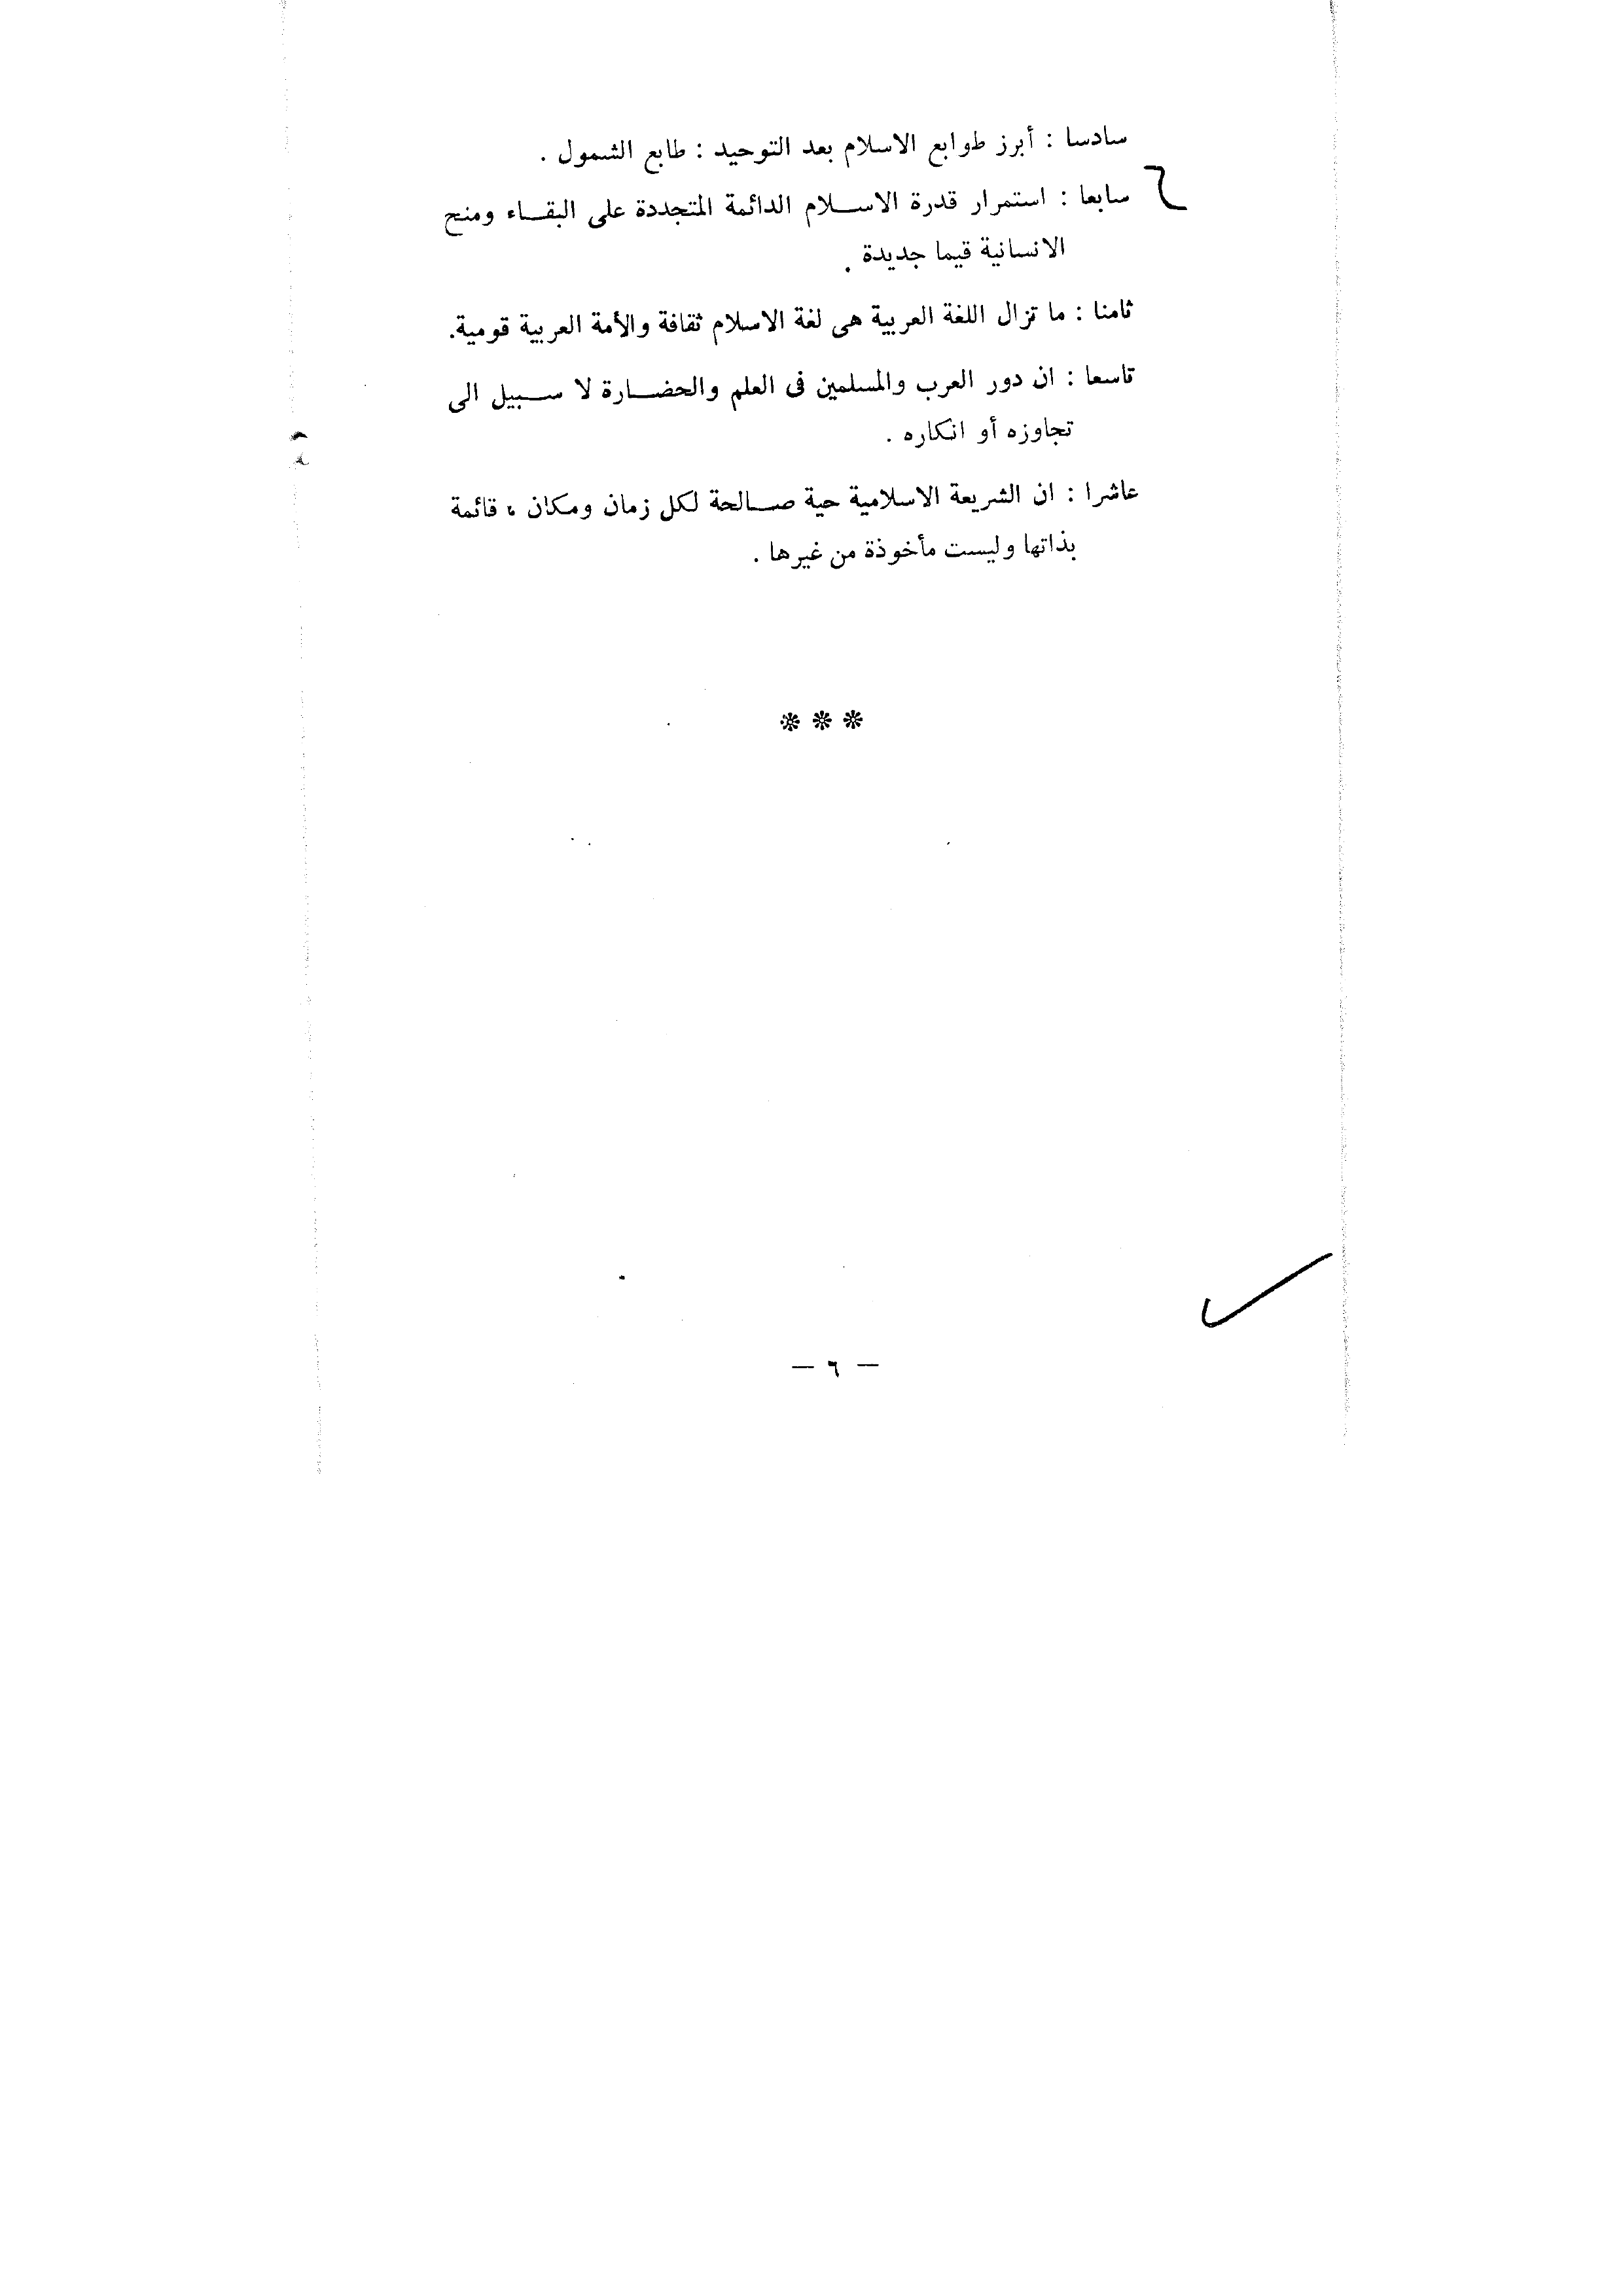 سادسا : أبرز طوابع الاسلام بعد التوحيد : طابع الشمول .
سابعا : استمرار قدرة الاسلام الدائمة المتجددة على البقاء ومنح
الانسانية قيما جديدة .
ثامنا : ما تزال اللغة العربية هى لغة الاسلام ثقافة والأمة العربية قومية.
تاسعا : ان دور العرب والمسلمين فى العلم والحضارة لا سبيل الى
تجاوزه أو انكاره .
عاشرا : ان الشريعة الاسلامية حية صالحة لكل زمان ومكان ، قائمة
بذاتها وليست مأخوذة من غيرها .
* * *
— ٦ —